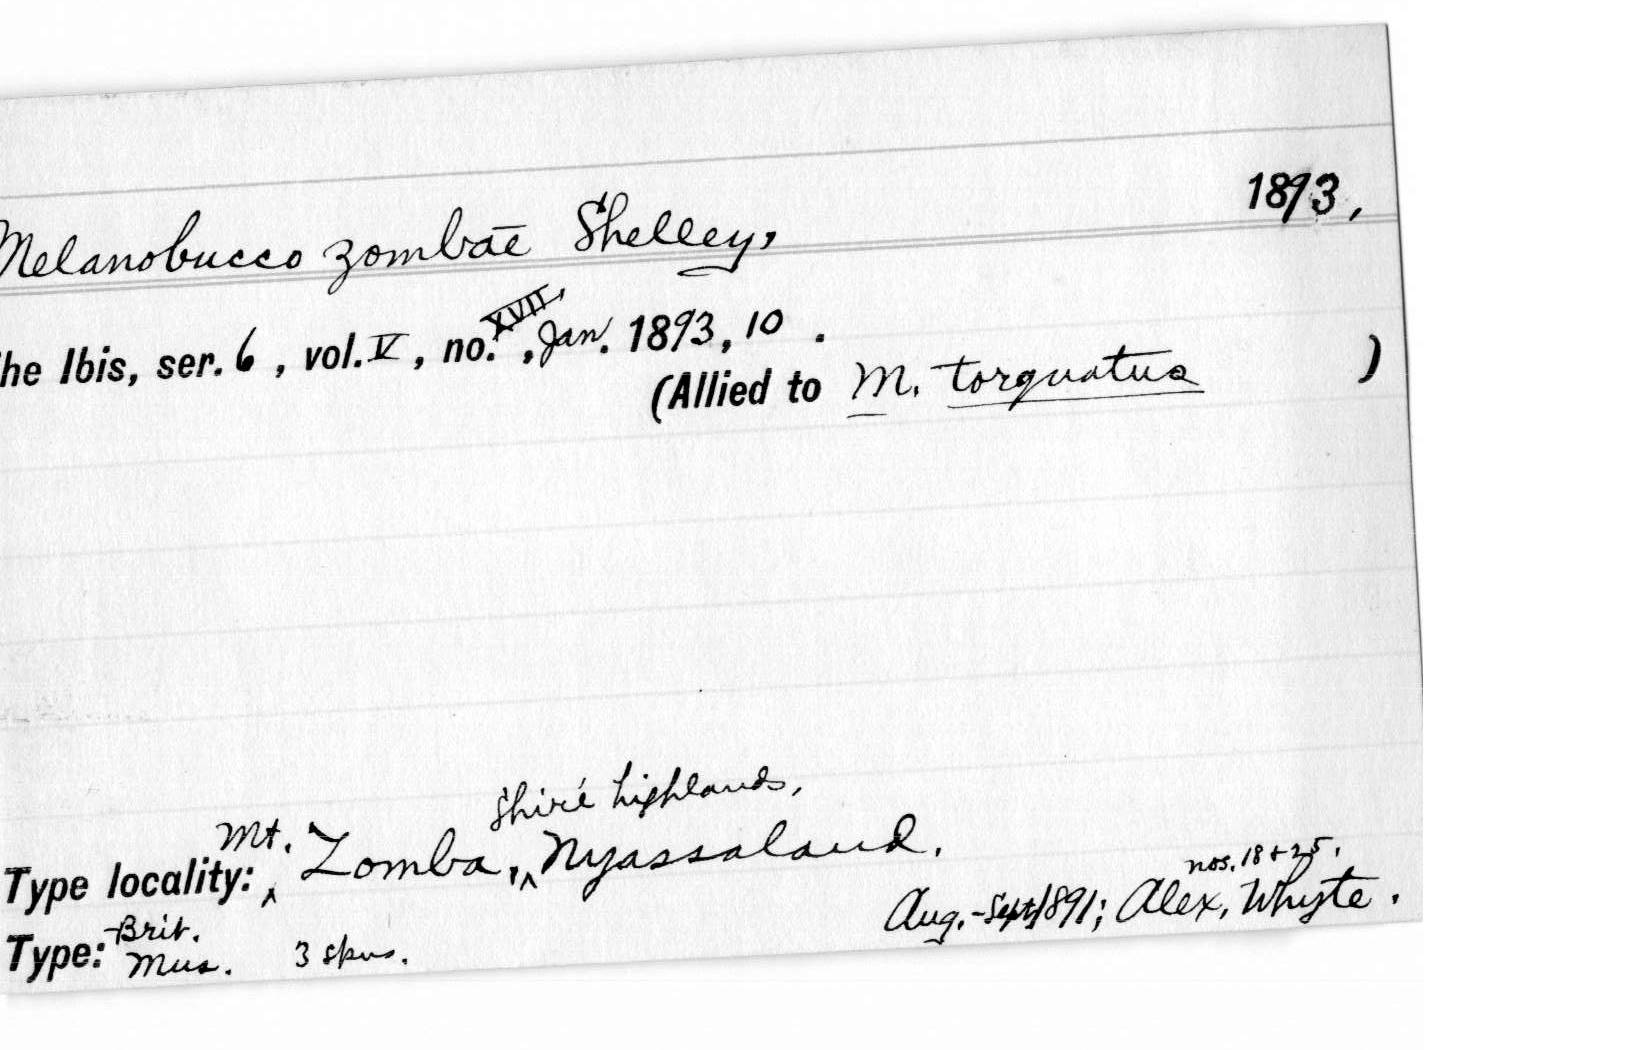 Melanobucco zombae Shelley, 1893,
he Ibis, ser. 6, vol. V, no. XVII, Jan. 1893, 10.
(Allied to M. torquatus )
Shiré highlands,
Mt. Zomba, Nyassaland.
Type locality:
nos. 18 + 25.
Aug.-Sept/1891; Alex, Whyte.
Type: Brit. Mus. 3 spns.